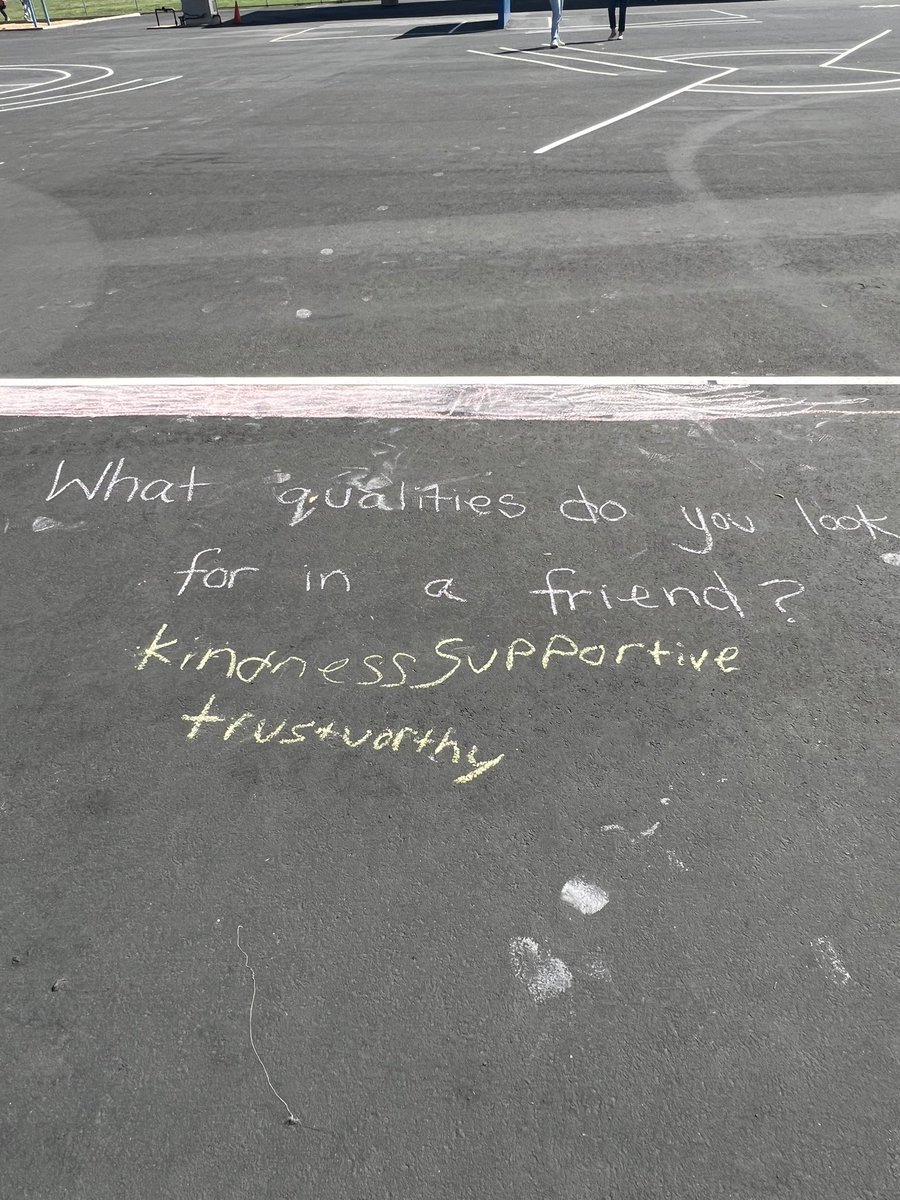 What qualities do you look
for in a friend?
kindness Supportive
trustworthy